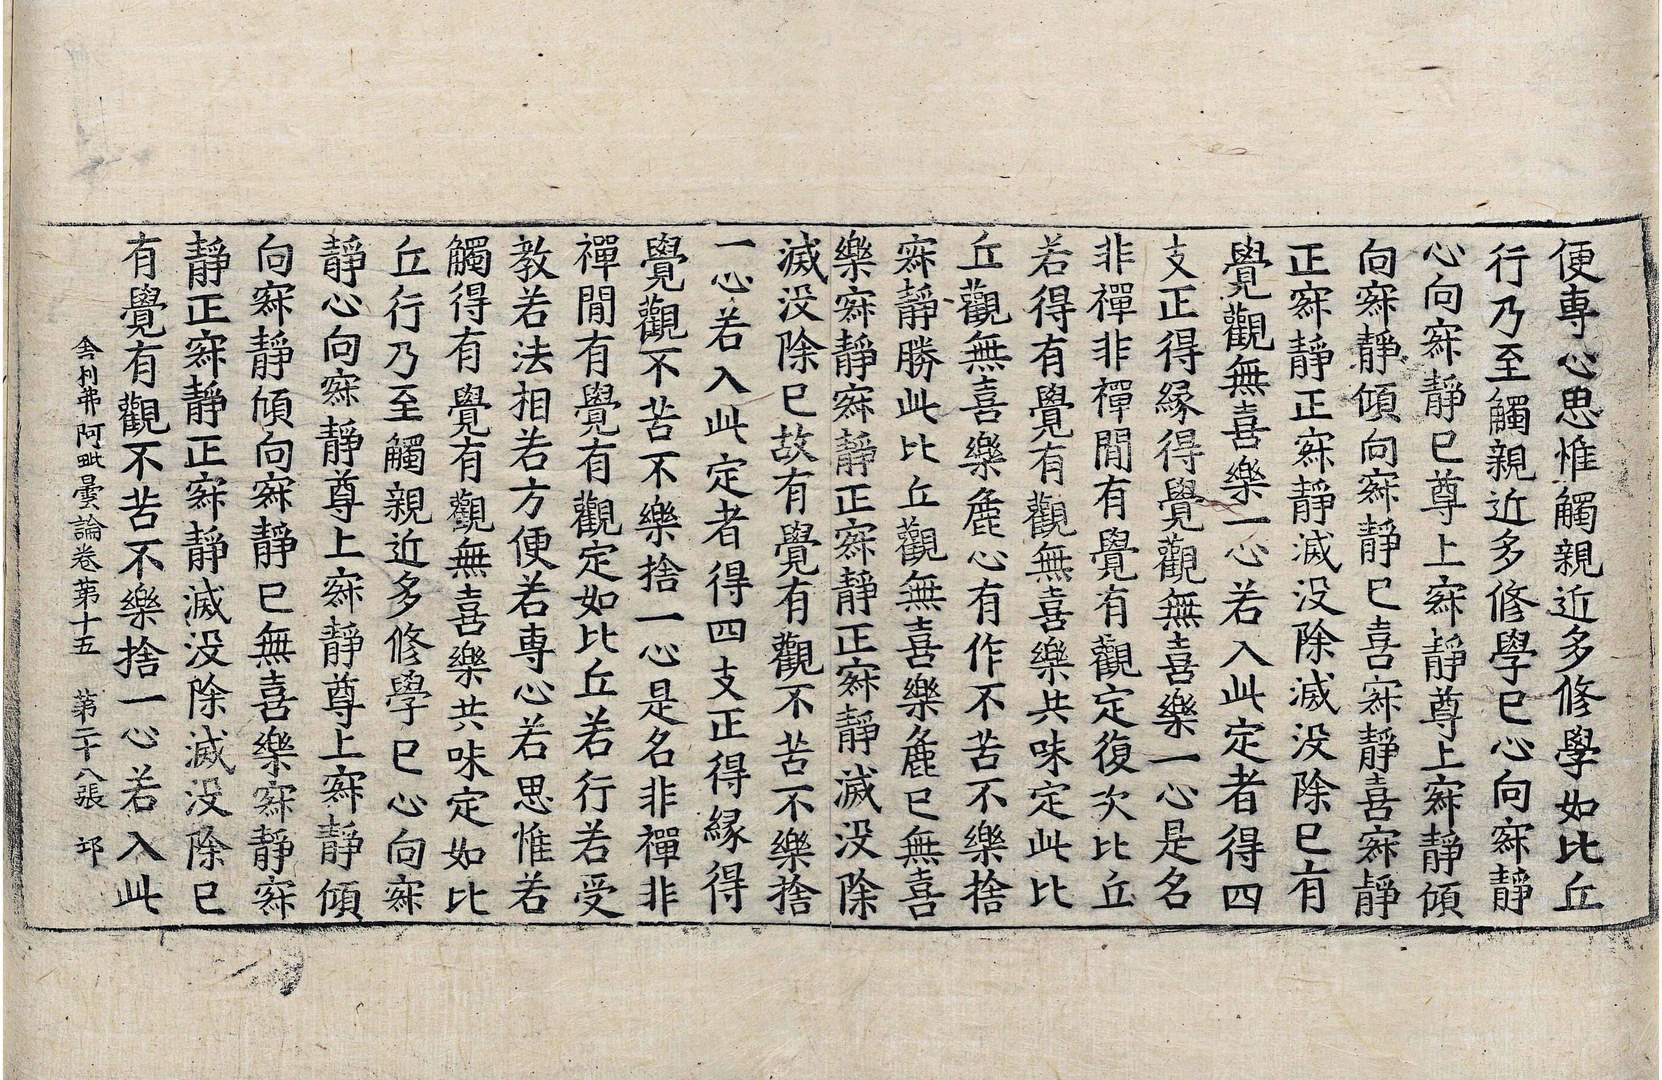 便專心思惟觸親近多修學如比丘
行乃至觸親近多修學已心向寂靜
心向寂靜已尊上寂靜尊上寂靜傾
向寂靜傾向寂靜已喜寂靜喜寂靜
正寂靜正寂靜滅没除滅没除已有
覺觀無喜樂一心若入此定者得四
支正得緣得覺觀無喜樂一心是名
非禪非禪閒有覺有觀定復次比丘
若得有覺有觀無喜樂共味定此比
丘觀無喜樂麁心有作不苦不樂捨
寂靜勝此比丘觀無喜樂麁已無喜
樂寂靜寂靜正寂靜正寂靜滅没除
滅没除已故有覺有觀不苦不樂捨
一心若入此定者得四支正得緣得
覺觀不苦不樂捨一心是名非禪非
禪閒有覺有觀定如比丘若行若受
教若法相若方便若專心若思惟若
觸得有覺有觀無喜樂共味定如比
丘行乃至觸親近多修學已心向寂
靜心向寂靜尊上寂靜尊上寂靜傾
向寂靜傾向寂靜已無喜樂寂靜寂
靜正寂靜正寂靜滅没除滅没除已
有覺有觀不苦不樂捨一心若入此
舍利弗阿毗曇論卷第十五 第二十八張 邙